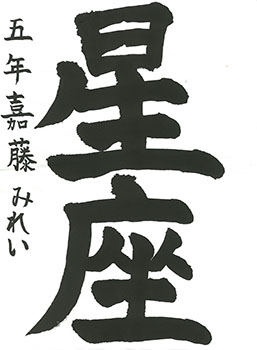 星座
五年嘉藤みれい